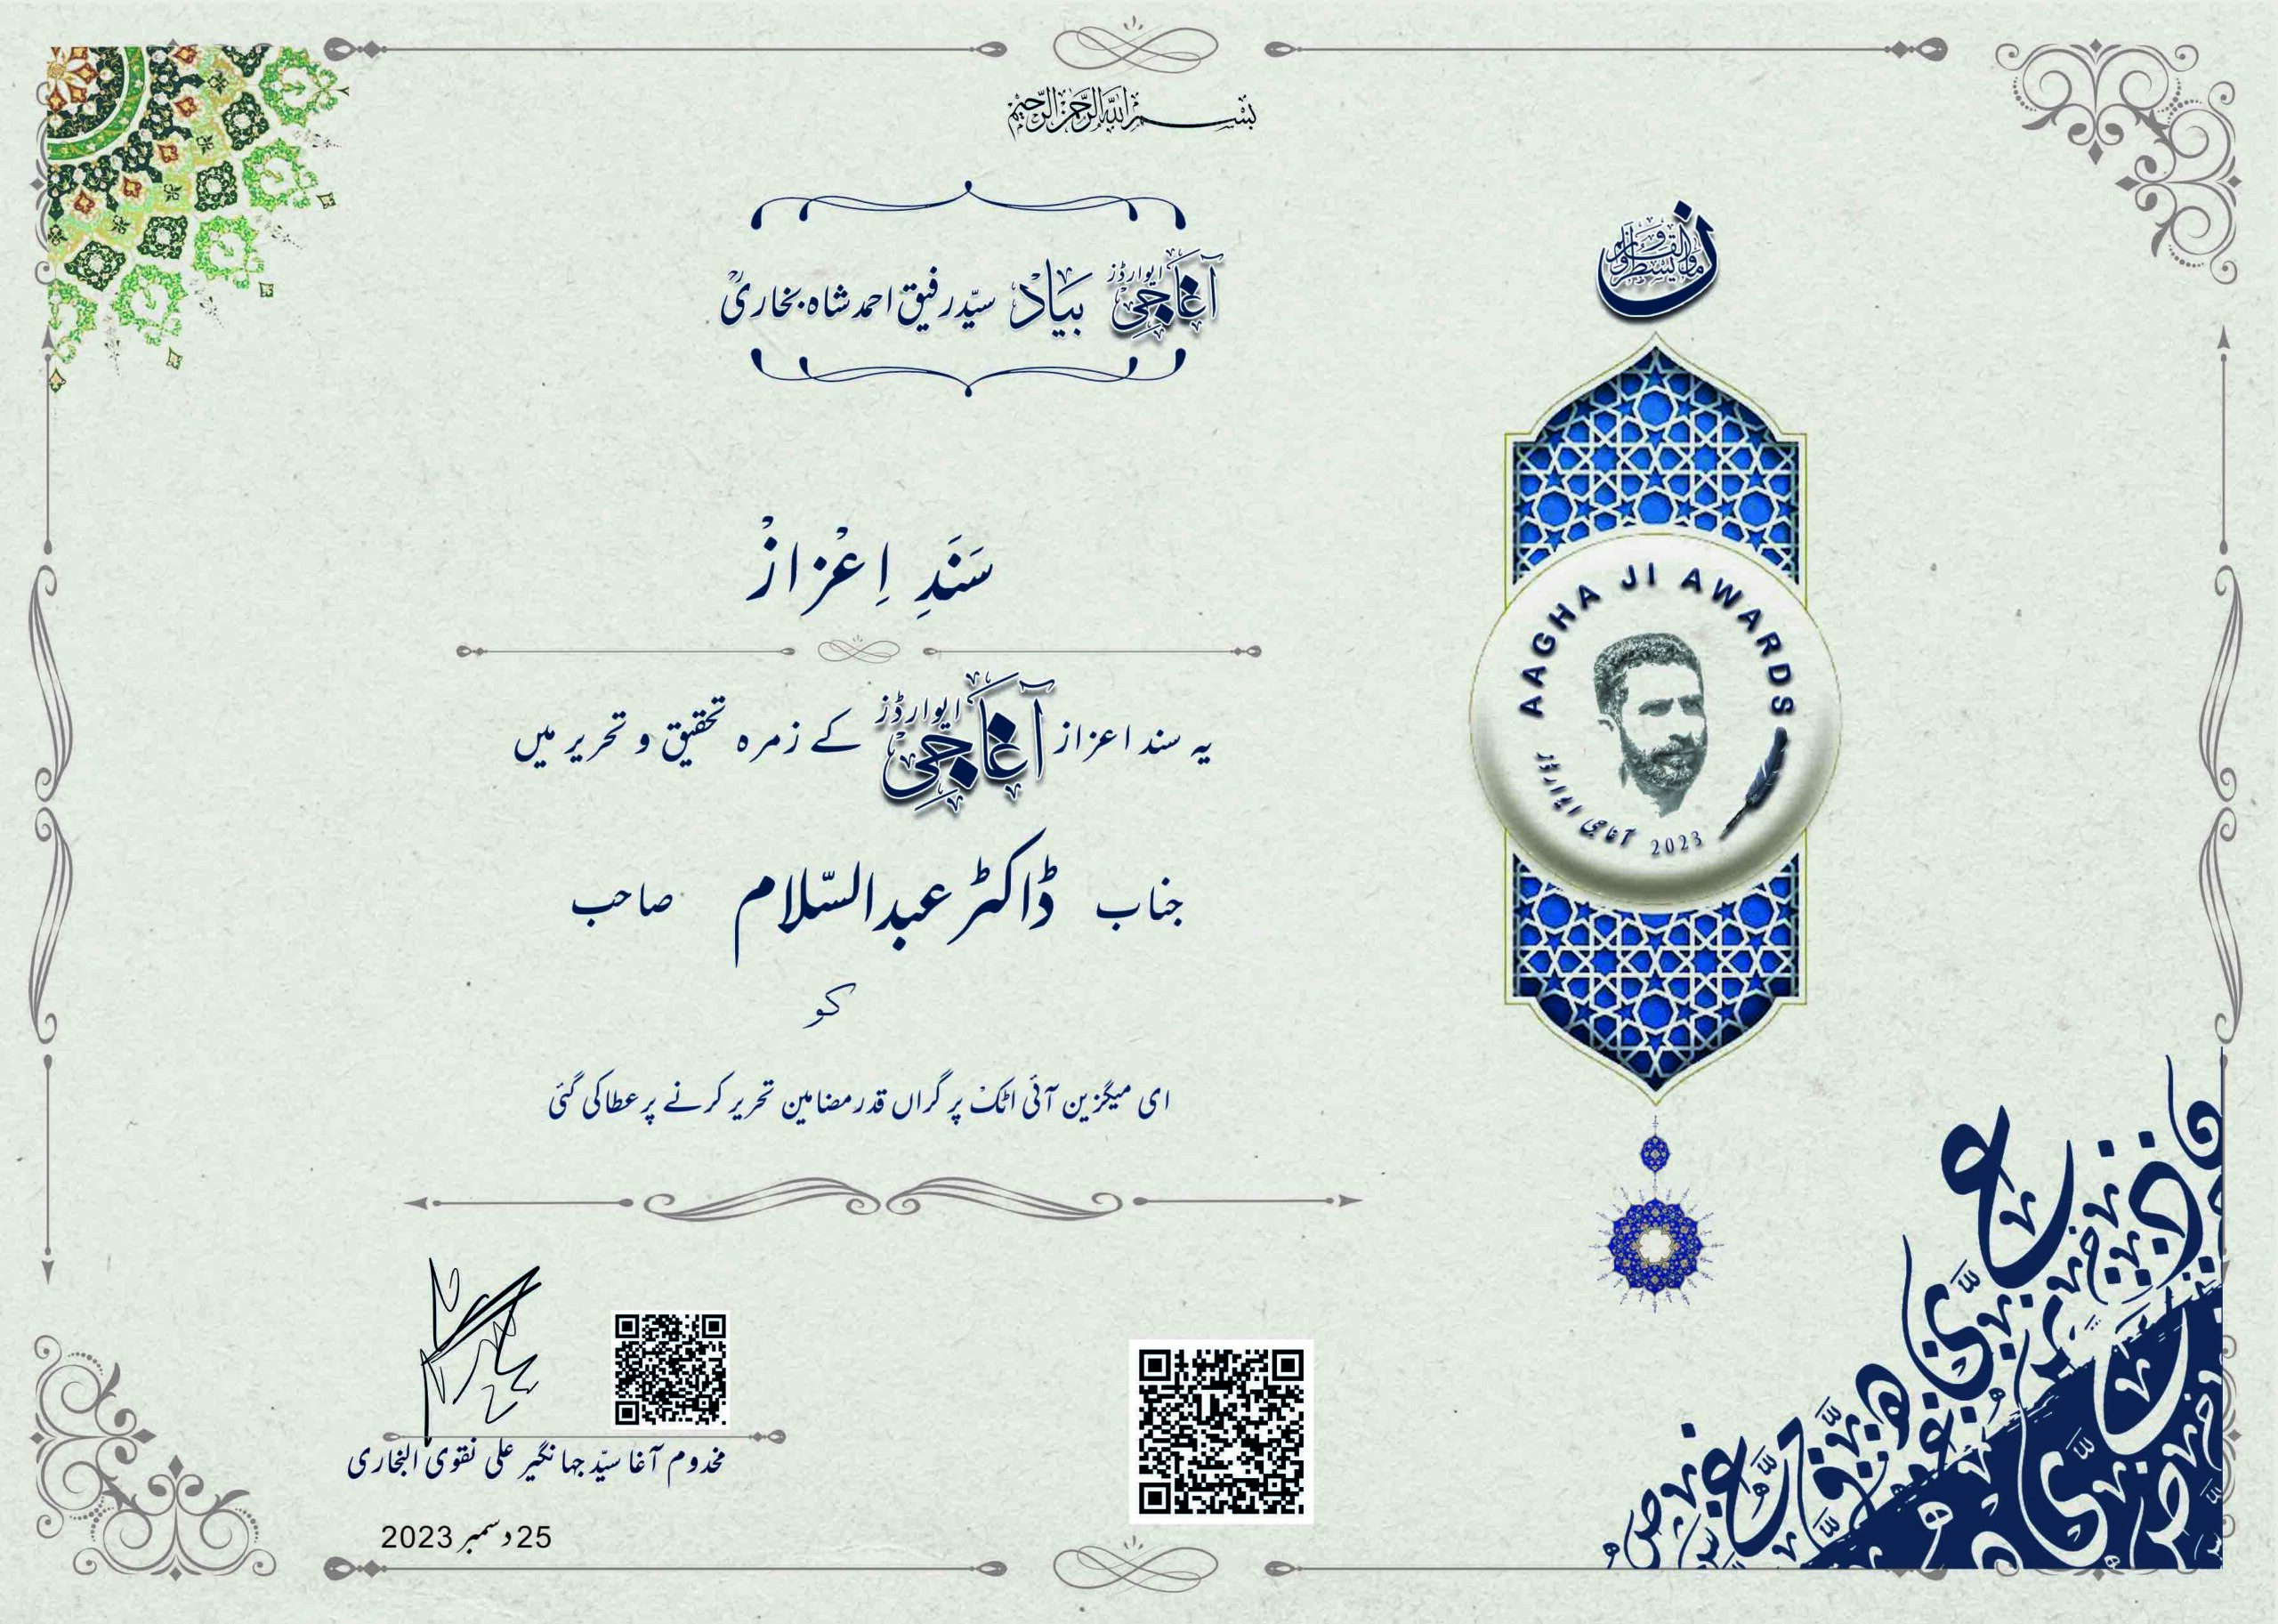 بسم الله الرحمن الرحیم
آغا جی ایوارڈز بیاد سیّد رفیق احمد شاہ بخاریؒ
ن والقلم وما یسطرون
سَنَدِ اِعْزازْ
AAGHA JI AWARDS
آغا جی ایوارڈز 2023
یہ سند اعزاز آغا جی ایوارڈز کے زمرہ تحقیق و تحریر میں
جناب ڈاکٹر عبدالسّلام صاحب
کو
ای میگزین آئی اٹک پر گراں قدر مضامین تحریر کرنے پر عطا کی گئی
مخدوم آغا سیّد جہانگیر علی نقوی البخاری
25 دسمبر 2023